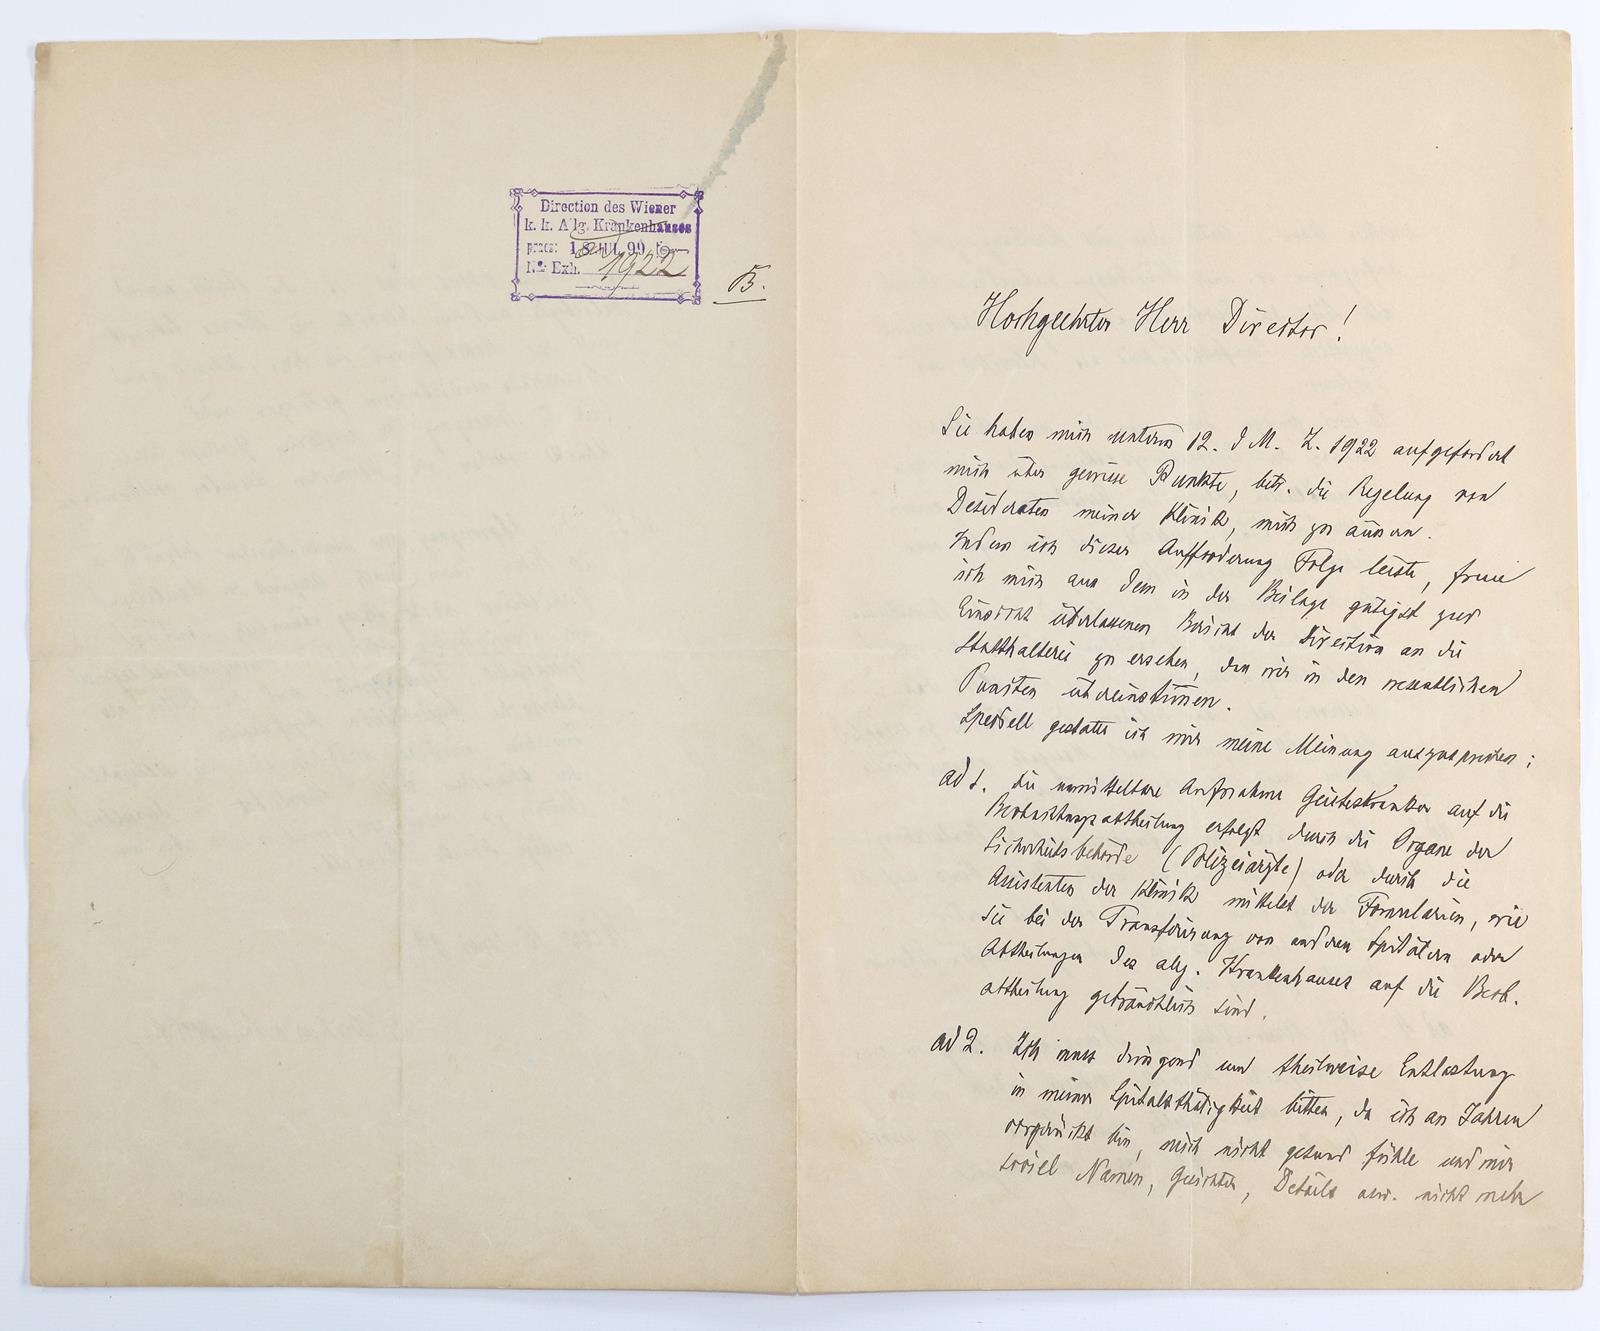 Direction des Wiener
k. k. Allg. Krankenhauses
praes: 18 JUL. 99
No. Exh. 1922
B.
Hochgeehrter Herr Director!
Sie haben mich unterm 12. d M. Z. 1922 aufgefordert
mich über gewisse Punkte, betr. die Regelung von
Desideraten meiner Klinik, mich zu äussern.
Indem ich dieser Aufforderung Folge leiste, freue
ich mich aus dem in der Beilage gütigst zur
Einsicht überlassenen Bericht der Direction an die
Statthalterei zu ersehen, dass wir in den wesentlichen
Puncten übereinstimen.
Speciell gestatte ich mir meine Meinung auszusprechen:
ad 1. die unmittelbare Aufnahme Geisteskranker auf die
Beobachtungsabtheilung erfolgt durch die Organe der
Sicherheitsbehörde (Polizeiärzte) oder durch die
Assistenten der Klinik mittelst der Formularien, wie
sie bei der Transferirung von anderen Spitälern oder
Abtheilungen des allg. Krankenhauses auf die Beob.
abtheilung gebräuchlich sind.
ad 2. Ich muss dringend um theilweise Entlastung
in meiner Spitalsthätigkeit bitten, da ich an Jahren
vorgerückt bin, mich nicht gesund fühle und mir
soviel Namen, Gesichter, Details usw. nicht mehr